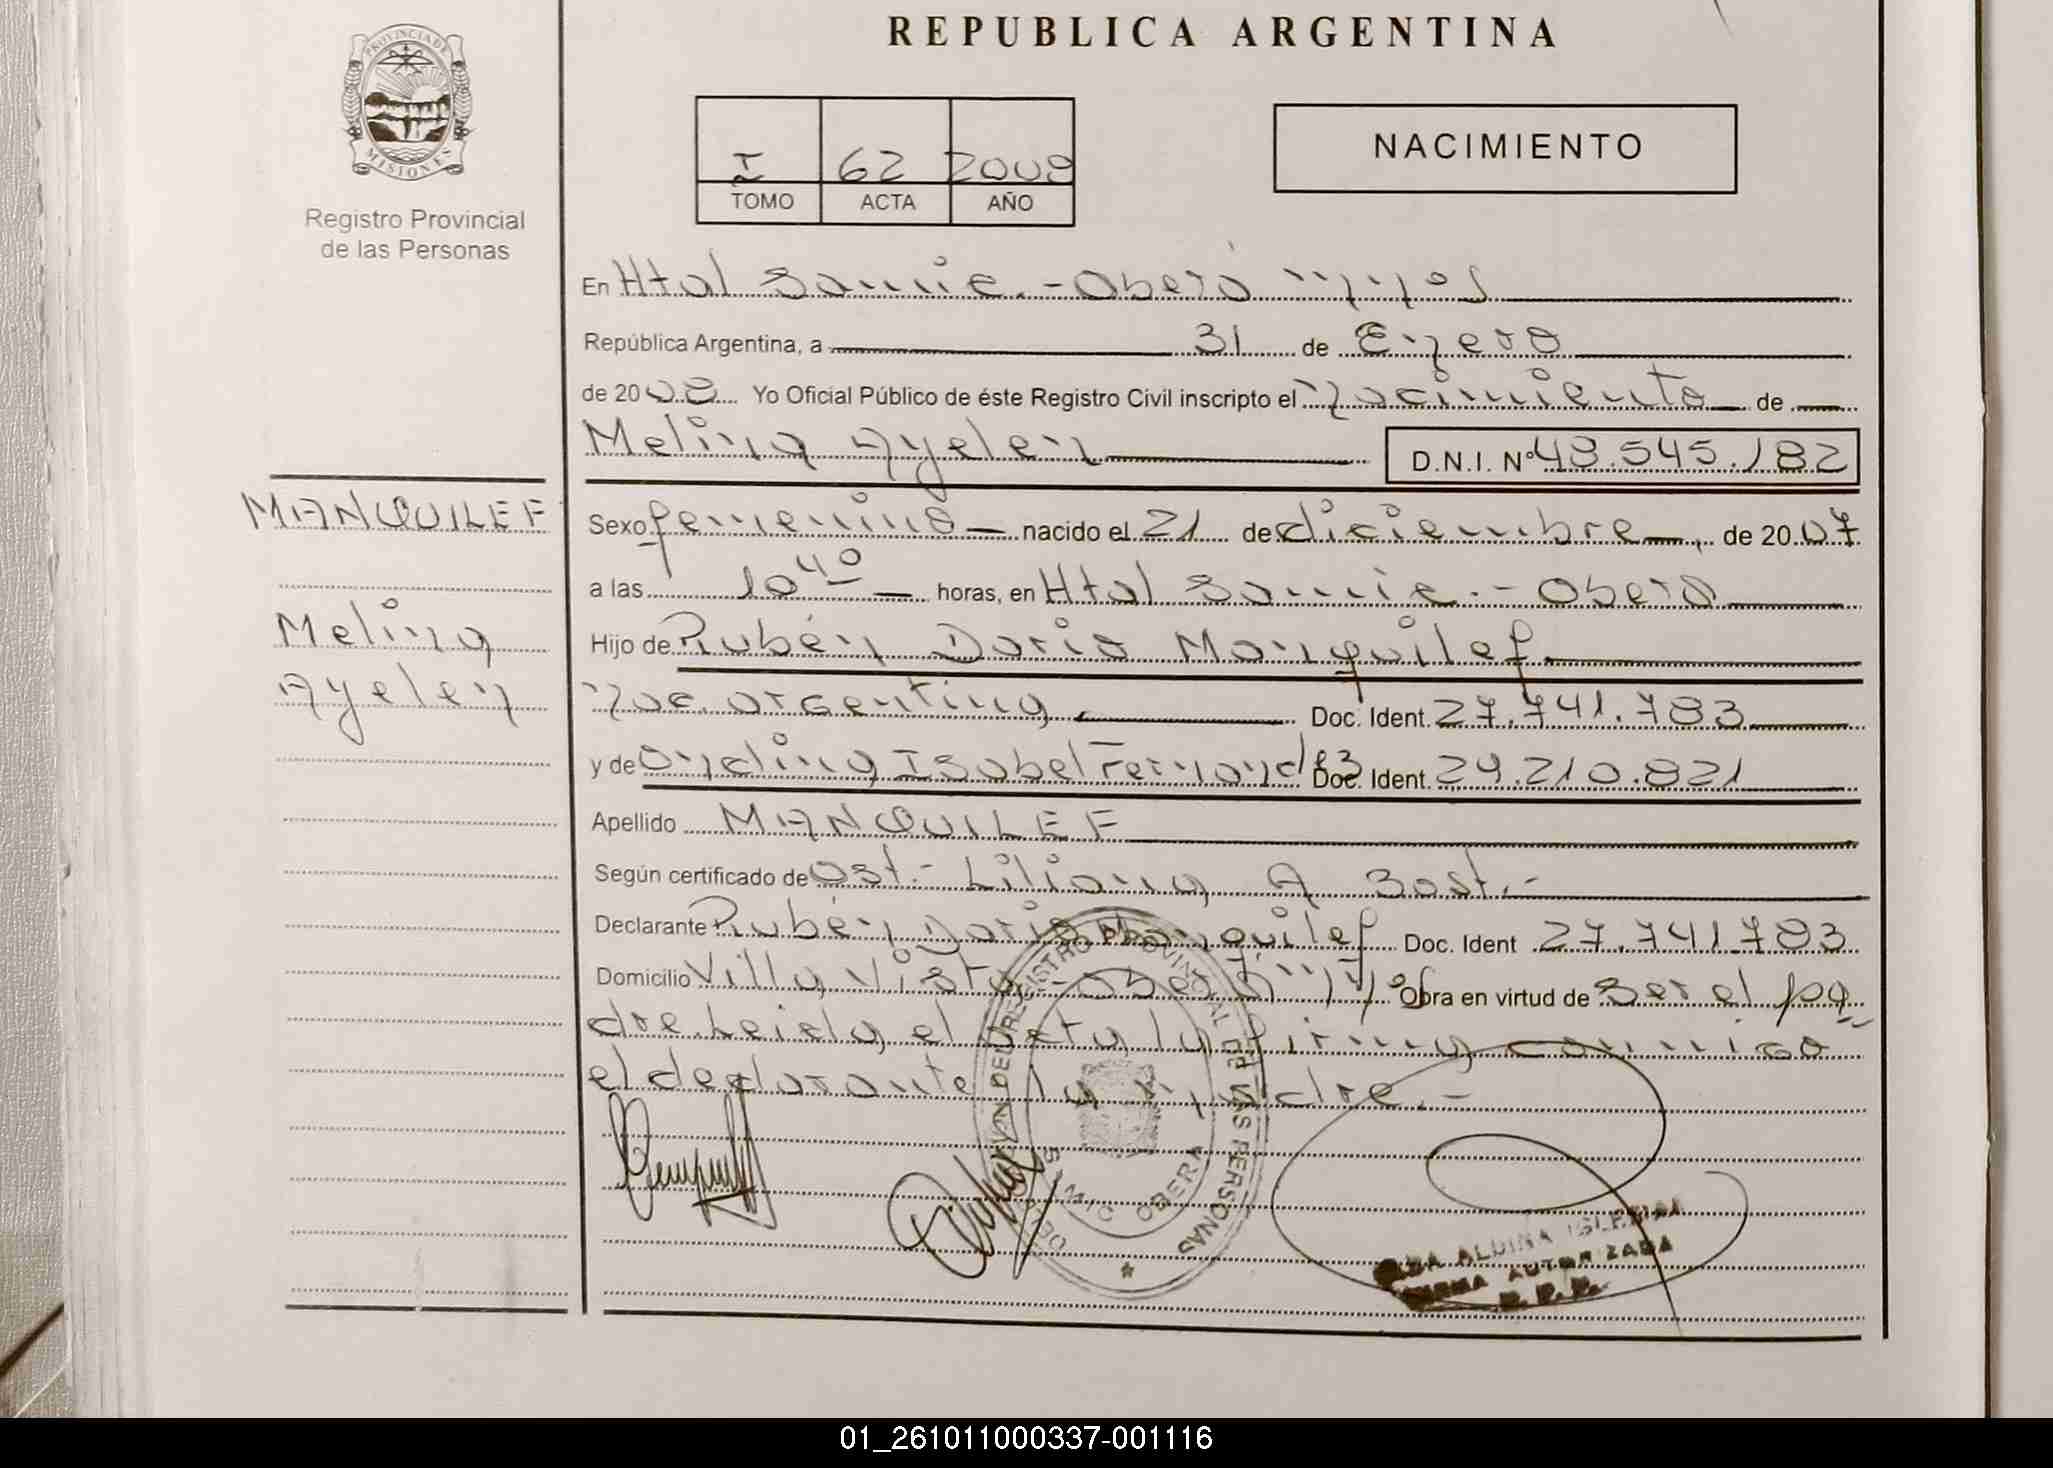 REPUBLICA ARGENTINA
PROVINCIA DE MISIONES
Registro Provincial
de las Personas
I 62 2008
TOMO ACTA AÑO
NACIMIENTO
En Htal Samic.-Oberá Mnes
República Argentina, a 31 de Enero
de 2008 Yo Oficial Público de éste Registro Civil inscripto el Nacimiento de
Melina Ayelen D.N.I. Nº 48.545.182
MANQUILEF
Melina
Ayelen
Sexo femenino nacido el 21 de diciembre de 2007
a las 10 40 horas, en Htal Samic.- Oberá
Hijo de Rubén Dario Manquilef
Nac. argentina Doc. Ident. 27.741.783
y de Ondina Isabel Fernandez Doc. Ident. 29.210.821
Apellido MANQUILEF
Según certificado de Obst.- Liliana A Bast.-
Declarante Rubén Dario Manquilef Doc. Ident 27.741783
Domicilio Villa Vista-Oberá Obra en virtud de Ser el pa
dre. Leida el acta la firma conmigo
el declarante la madre.-
REGISTRO PROVINCIAL DE LAS PERSONAS
SAMIC OBERA
ALDINA IGLESIAS
FIRMA AUTORIZADA
R. P. P.
01_261011000337-001116